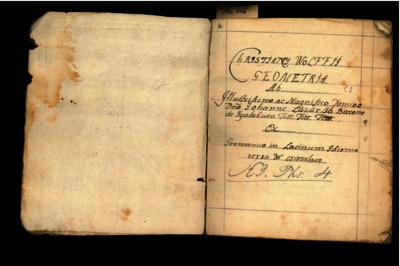 CHRISTIANI WOLFFII
GEOMETRIA
Ab
Illustrissimo ac Magnifico Domino
Dno Johanne Lazar Lib Barone
de Gyalakuta Titt. Titt. Titt.
Ex
Germanico in Latinum Idioma
versa et